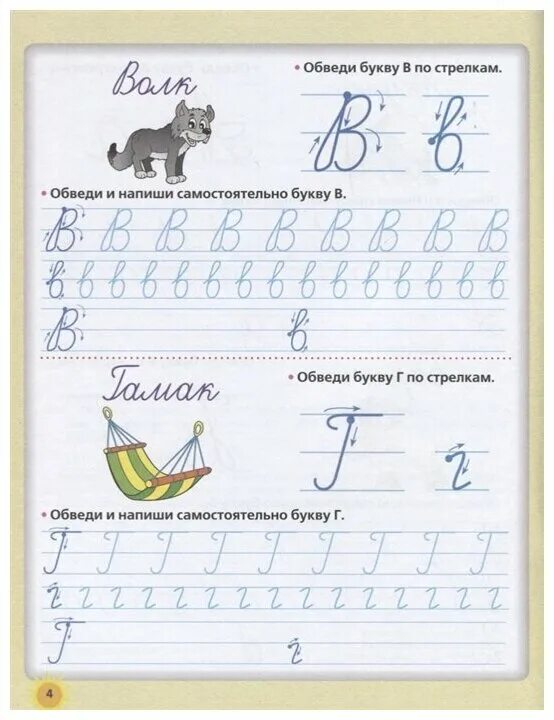 Волк
• Обведи букву В по стрелкам.
В в
• Обведи и напиши самостоятельно букву В.
В В В В В В В В В
в в в в в в в в в в в в в в в
В в
Гамак
• Обведи букву Г по стрелкам.
Г г
• Обведи и напиши самостоятельно букву Г.
Г Г Г Г Г Г Г Г Г
г г г г г г г г г г г г г г г
Г г
4